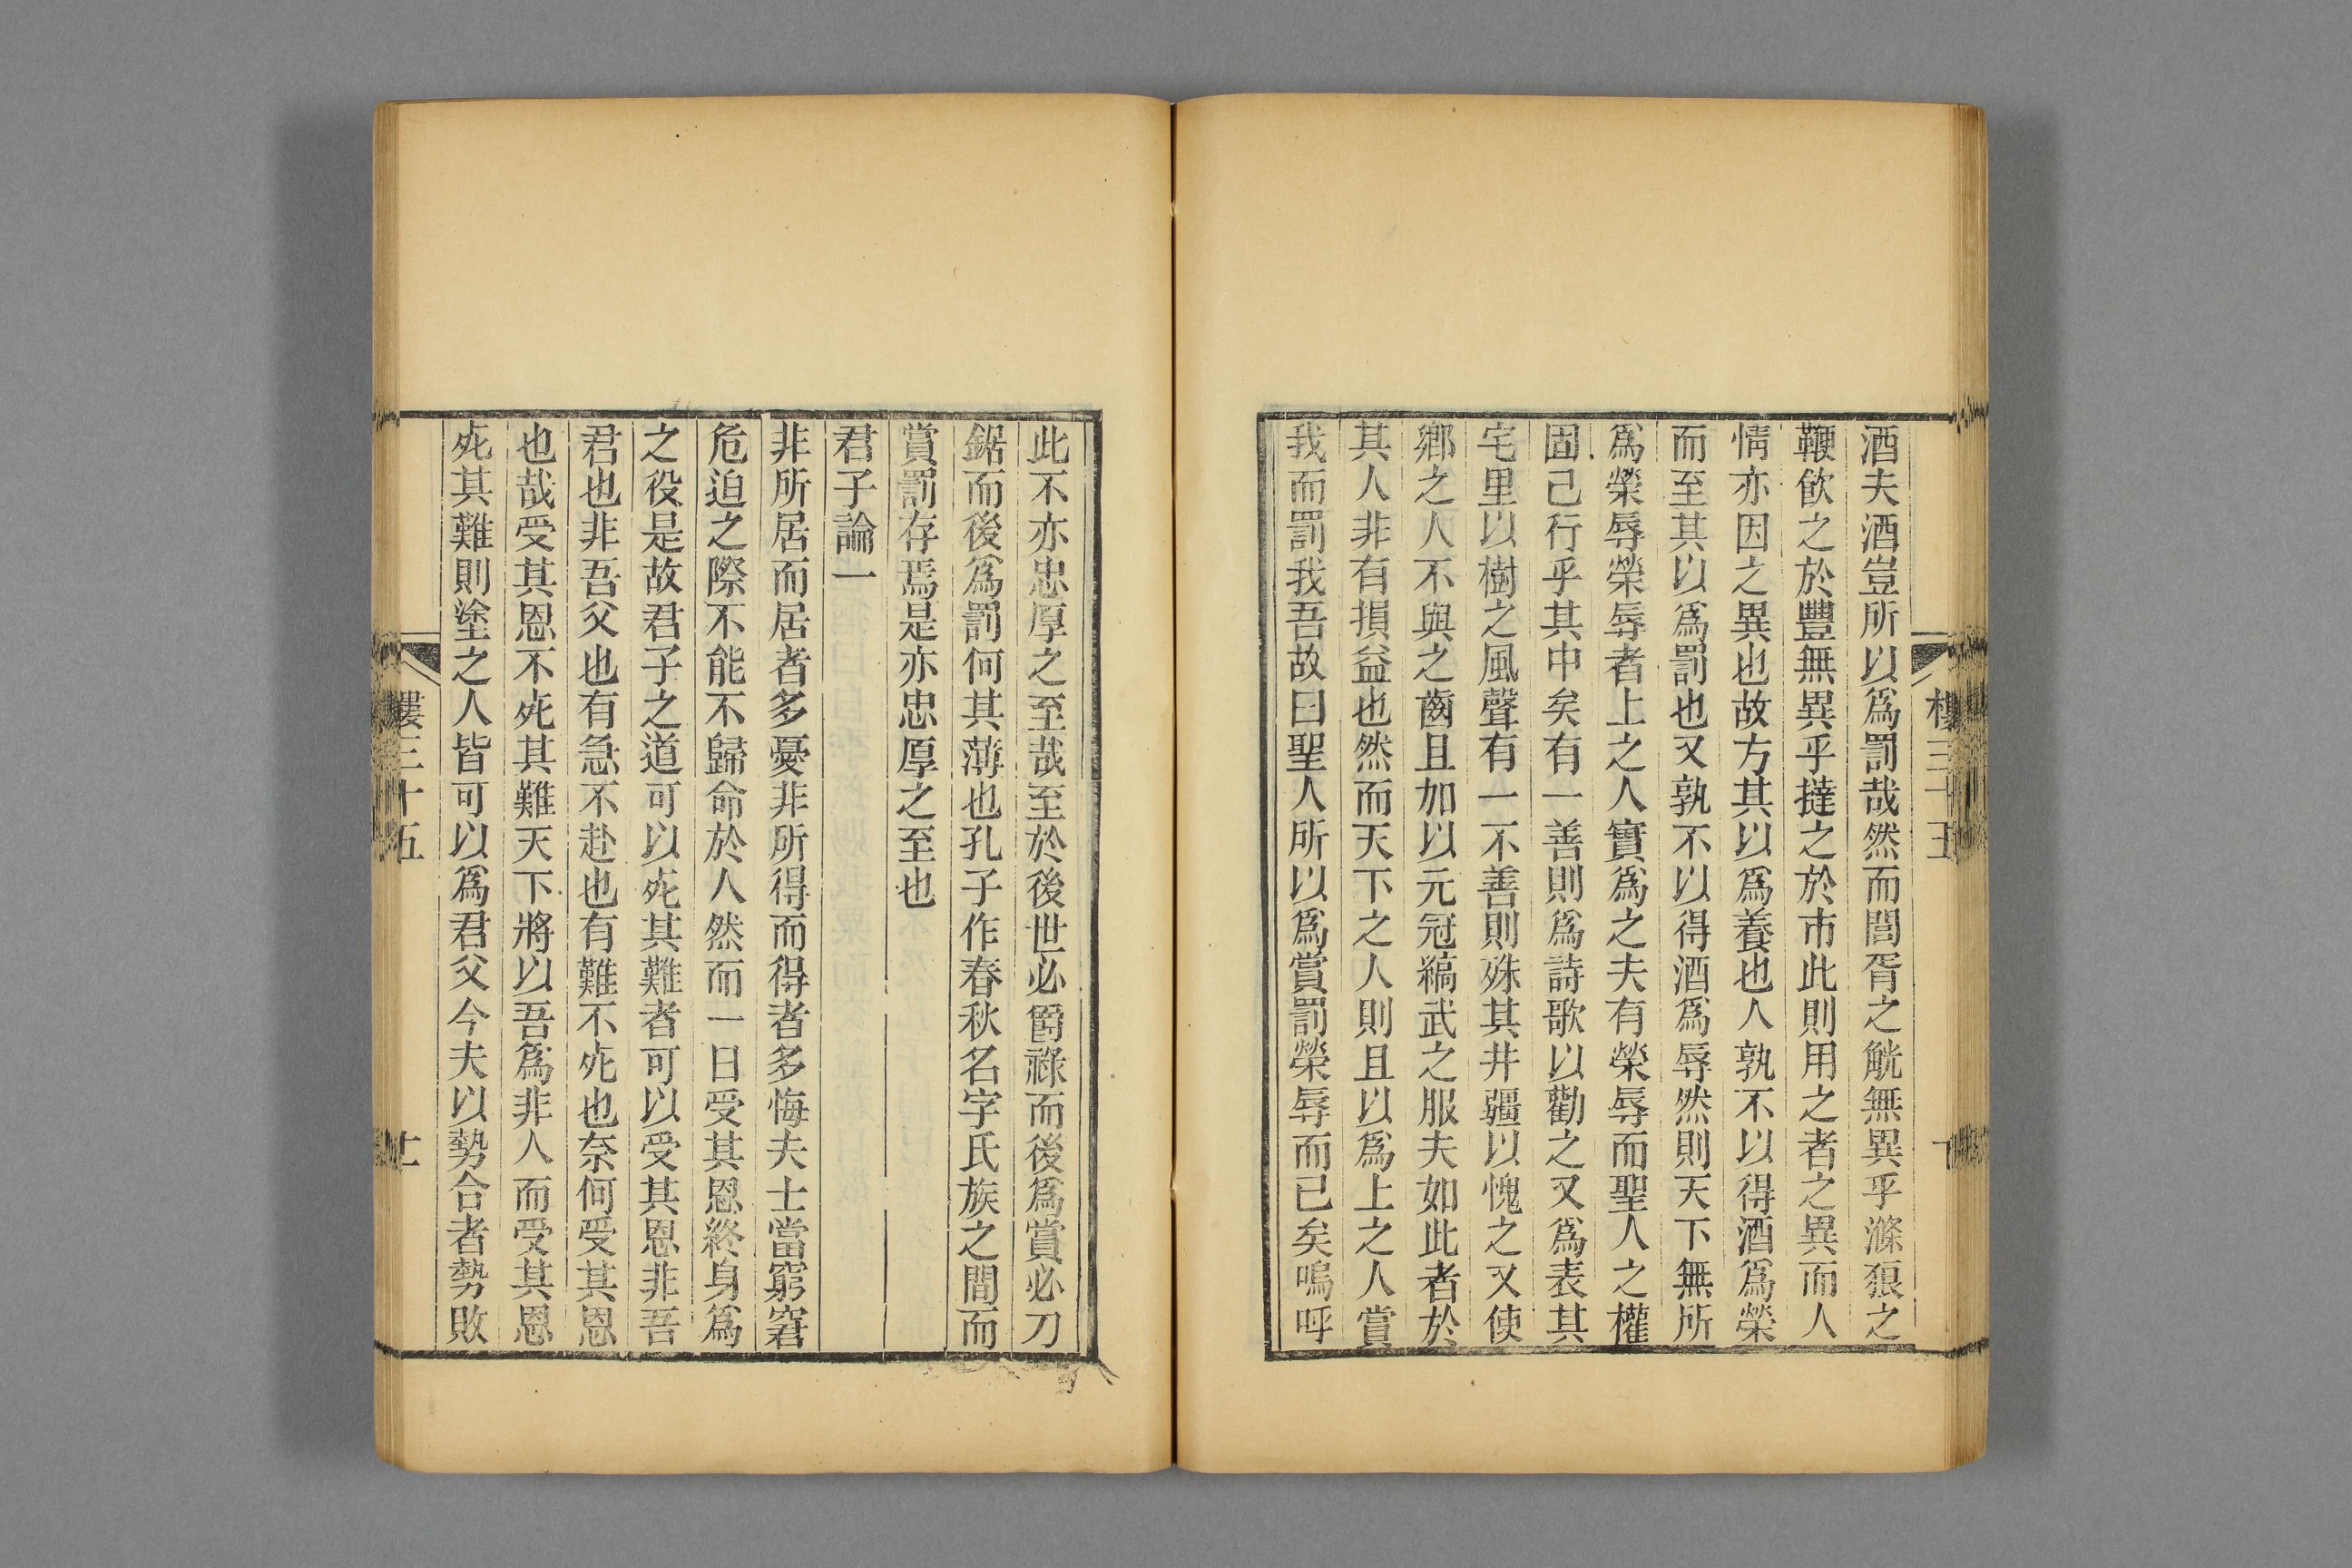 酒夫酒豈所以爲罰哉然而閭胥之觥無異乎滌狼之
鞭飲之於豐無異乎撻之於市此則用之者之異而人
情亦因之異也故方其以爲養也人孰不以得酒爲榮
而至其以爲罰也又孰不以得酒爲辱然則天下無所
爲榮辱榮辱者上之人實爲之夫有榮辱而聖人之權
固己行乎其中矣有一善則爲詩歌以勸之又爲表其
宅里以樹之風聲有一不善則殊其井疆以愧之又使
鄉之人不與之齒且加以元冠縞武之服夫如此者於
其人非有損益也然而天下之人則且以爲上之人賞
我而罰我吾故曰聖人所以爲賞罰榮辱而已矣嗚呼
此不亦忠厚之至哉至於後世必爵祿而後爲賞必刀
鋸而後爲罰何其薄也孔子作春秋名字氏族之間而
賞罰存焉是亦忠厚之至也
君子論一
非所居而居者多憂非所得而得者多悔夫士當窮窘
危迫之際不能不歸命於人然而一日受其恩終身爲
之役是故君子之道可以死其難者可以受其恩非吾
君也非吾父也有急不赴也有難不死也奈何受其恩
也哉受其恩不死其難天下將以吾爲非人而受其恩
死其難則塗之人皆可以爲君父今夫以勢合者勢敗
樓三十五